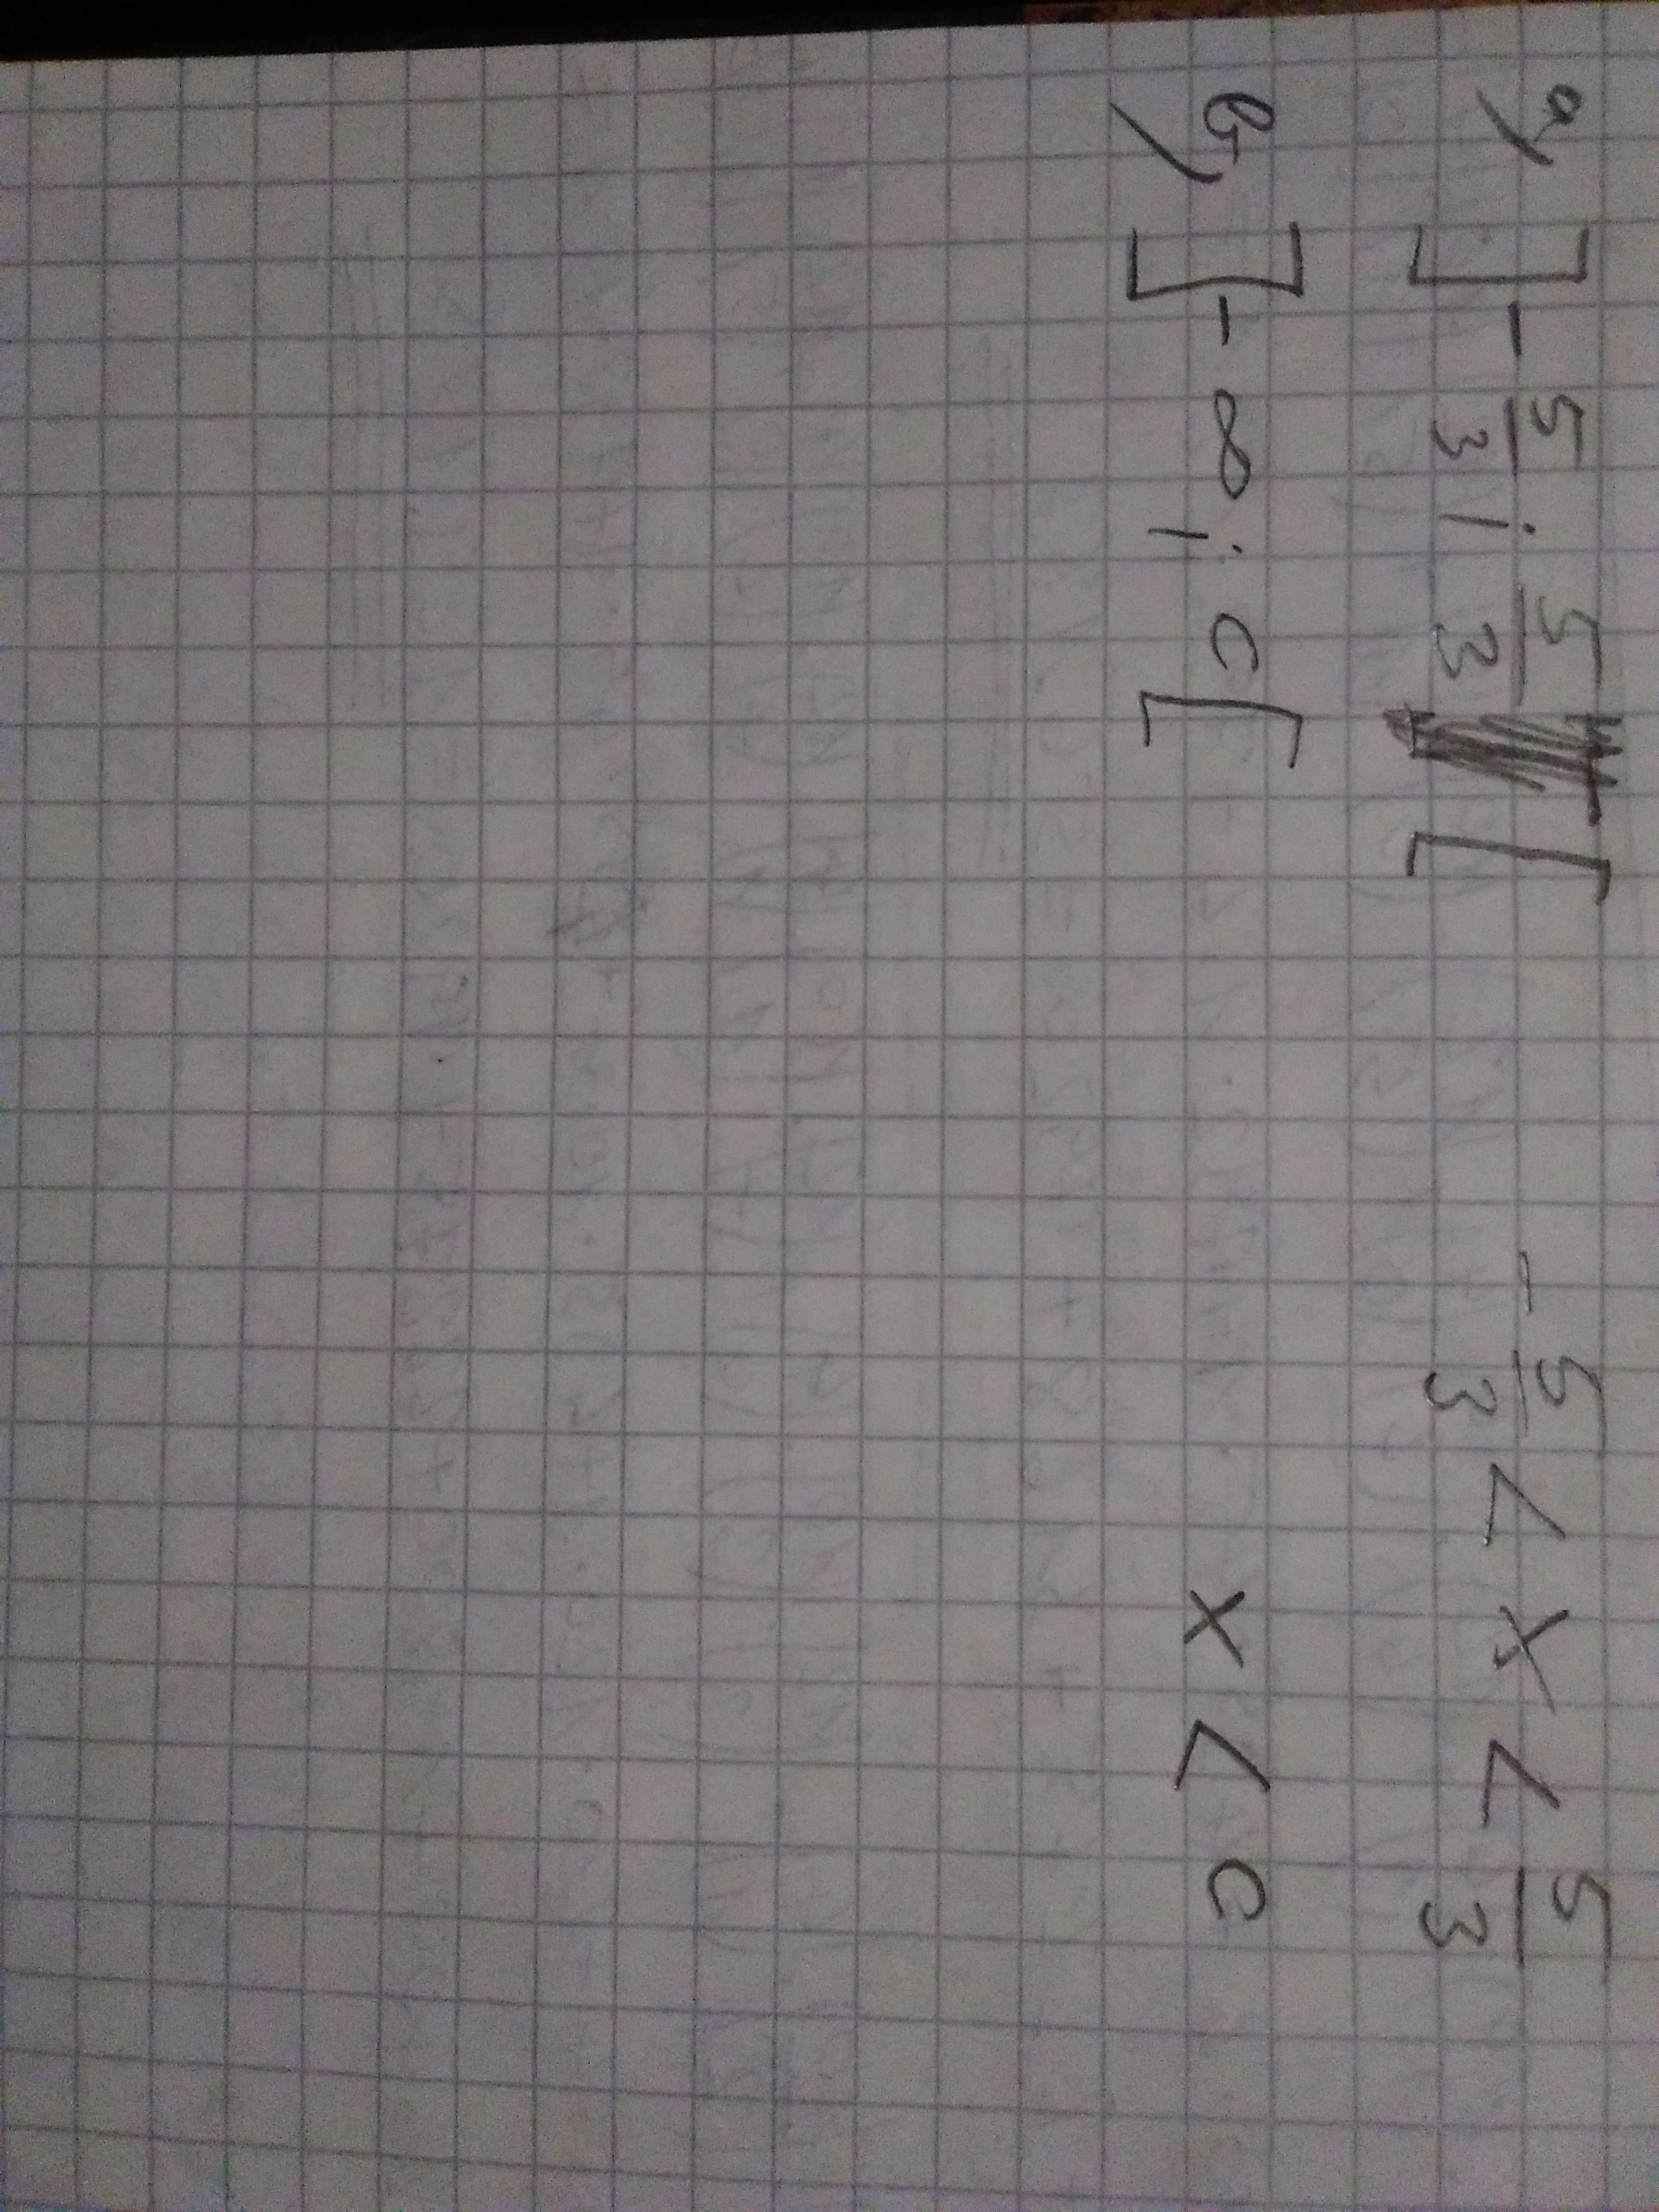 a) ]-5/3; 5/3 [ -5/3 < x < 5/3
b) ]-∞; c[ x < c